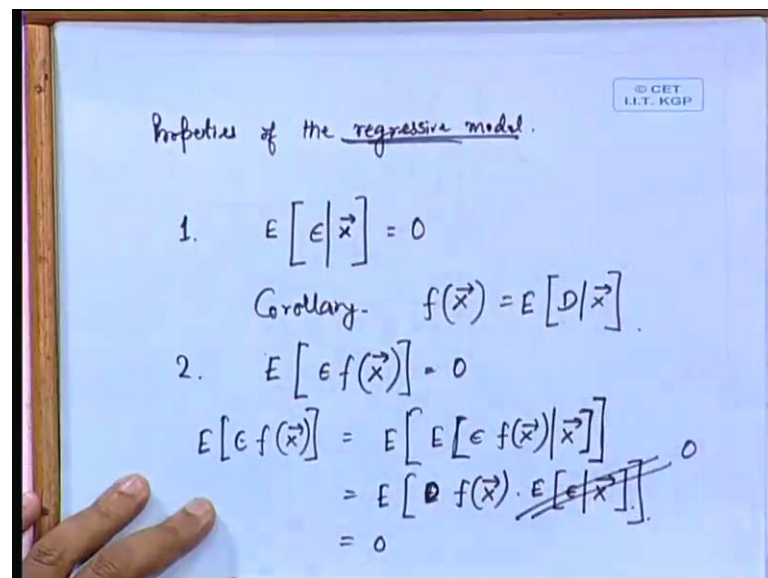 © CET
I.I.T. KGP
Properties of the regressive model.
1. E[ϵ|x⃗] = 0
Corollary- f(x⃗) = E[D|x⃗].
2. E[ϵ f(x⃗)] = 0
E[ϵ f(x⃗)] = E[E[ϵ f(x⃗)|x⃗]]
= E[f(x⃗) · E[ϵ|x⃗]]. 0
= 0